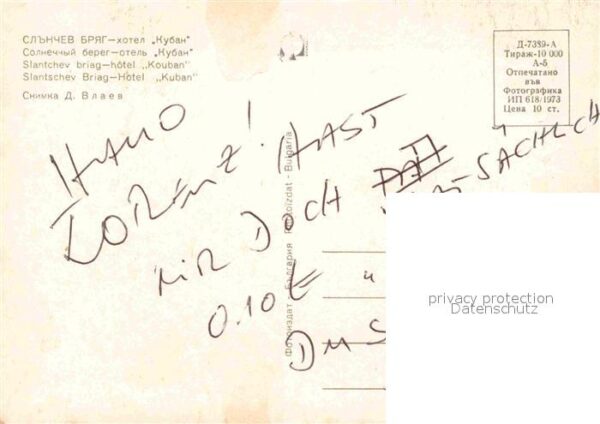 СЛЪНЧЕВ БРЯГ–хотел „Кубан"
Солнечный берег–отель „Кубан"
Slantchev briag–hôtel „Kouban"
Slantschev Briag–Hotel „Kuban"
Снимка Д. Влаев
Д-7389-А
Тираж-10 000
А-5
Отпечатано
във
Фотографика
ИП 618/1973
Цена 10 ст.
Фотоиздат - България Photoizdat - Bulgaria
HALLO
LORENZ! HAST
MIR DOCH TATSÄCHLICH
0.10 €
DMS
privacy protection
Datenschutz